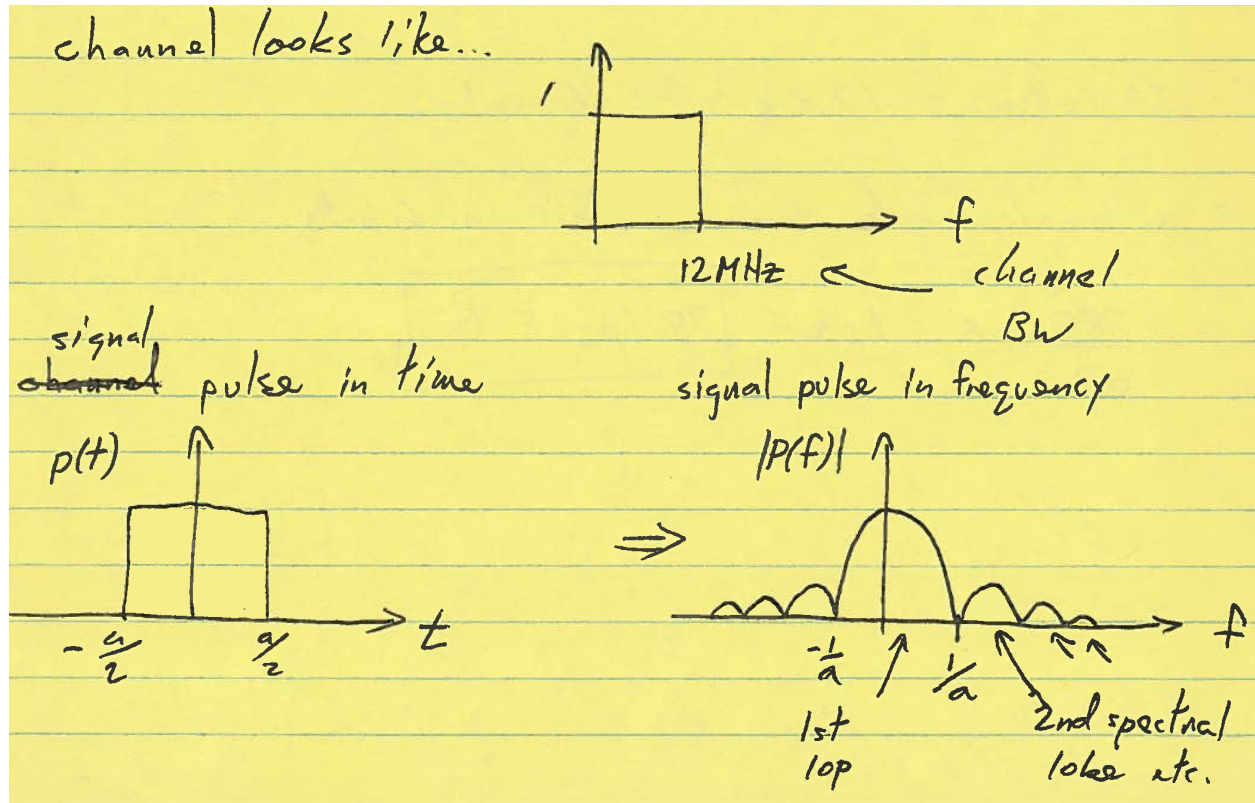 channel looks like...
1
f
12MHz
channel
BW
signal
channel pulse in time
signal pulse in frequency
p(t)
|P(f)|
⇒
-a/2
a/2
t
-1/a
1/a
f
1st
lop
2nd spectral
lobe etc.